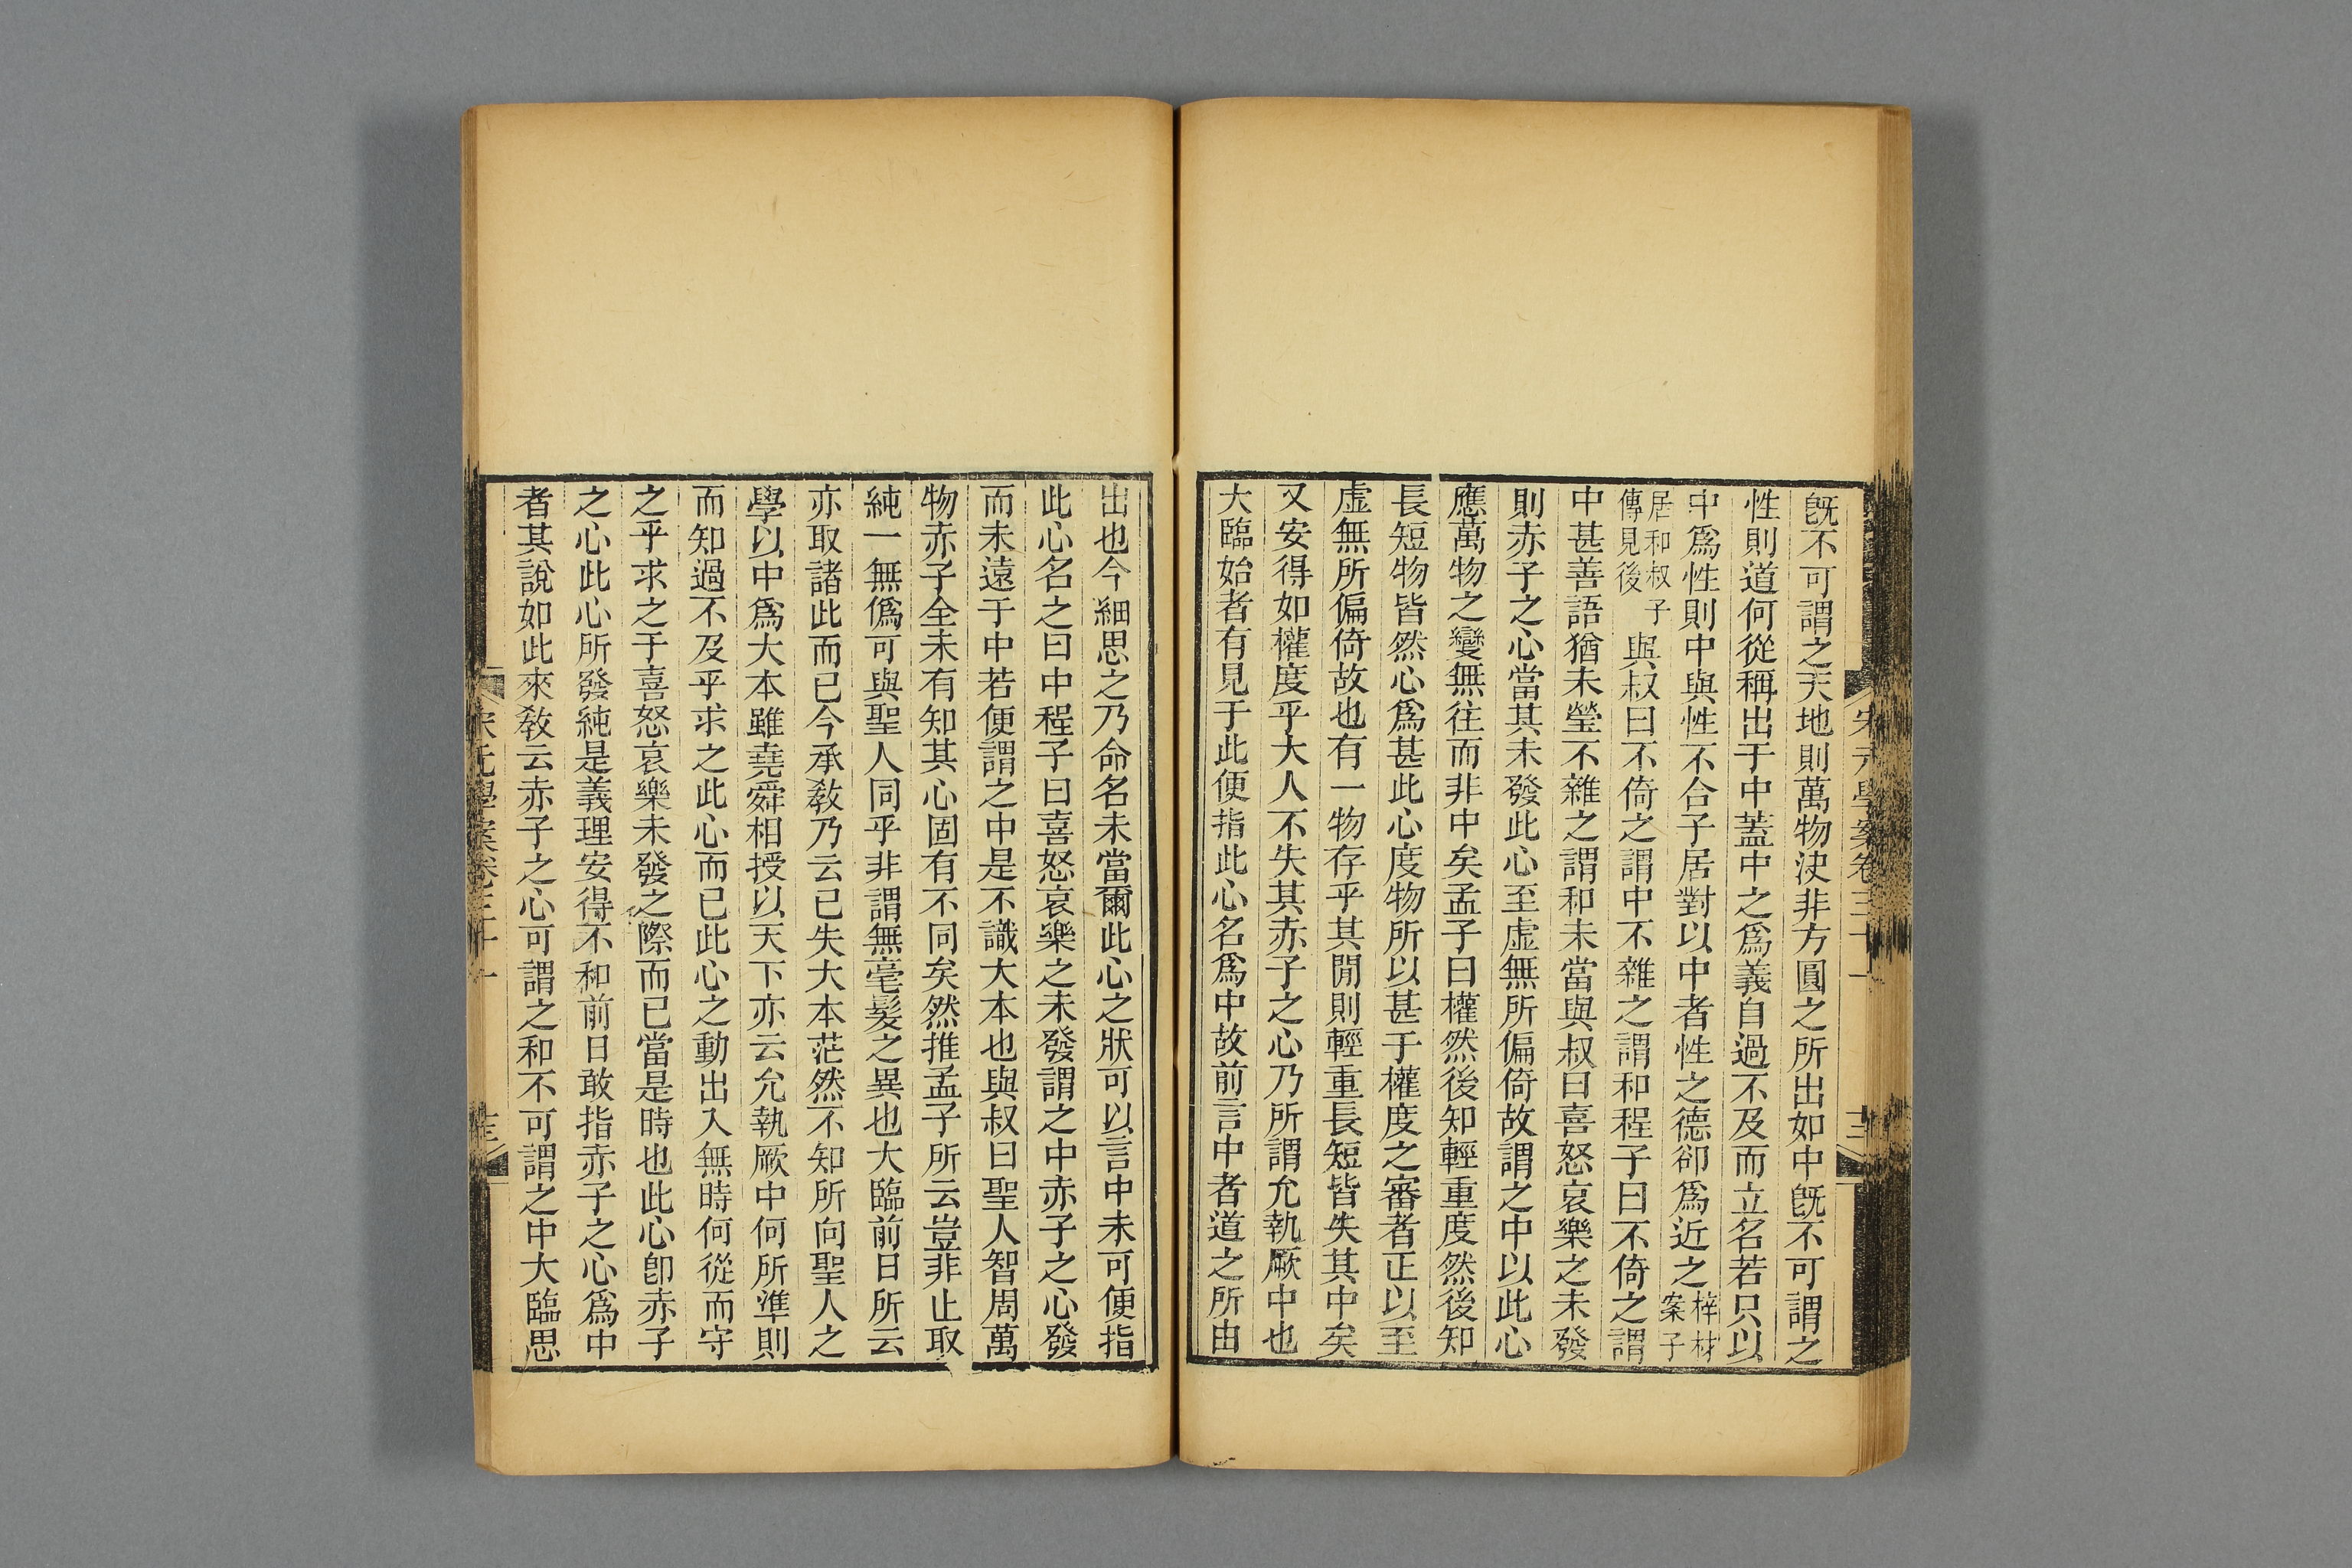 旣不可謂之天地則萬物決非方圓之所出如中旣不可謂之
性則道何從稱出于中蓋中之爲義自過不及而立名若只以
中爲性則中與性不合子居對以中者性之德卻爲近之梓材案子
居和叔子傳見後與叔曰不倚之謂中不雜之謂和程子曰不倚之謂
中甚善語猶未瑩不雜之謂和未當與叔曰喜怒哀樂之未發
則赤子之心當其未發此心至虛無所偏倚故謂之中以此心
應萬物之變無往而非中矣孟子曰權然後知輕重度然後知
長短物皆然心爲甚此心度物所以甚于權度之審者正以至
虛無所偏倚故也有一物存乎其閒則輕重長短皆失其中矣
又安得如權度乎大人不失其赤子之心乃所謂允執厥中也
大臨始者有見于此便指此心名爲中故前言中者道之所由
出也今細思之乃命名未當爾此心之狀可以言中未可便指
此心名之曰中程子曰喜怒哀樂之未發謂之中赤子之心發
而未遠于中若便謂之中是不識大本也與叔曰聖人智周萬
物赤子全未有知其心固有不同矣然推孟子所云豈非止取
純一無僞可與聖人同乎非謂無毫髮之異也大臨前日所云
亦取諸此而已今承敎乃云已失大本茫然不知所向聖人之
學以中爲大本雖堯舜相授以天下亦云允執厥中何所準則
而知過不及乎求之此心而已此心之動出入無時何從而守
之乎求之于喜怒哀樂未發之際而已當是時也此心卽赤子
之心此心所發純是義理安得不和前日敢指赤子之心爲中
者其說如此來敎云赤子之心可謂之和不可謂之中大臨思
宋元學案卷三十一